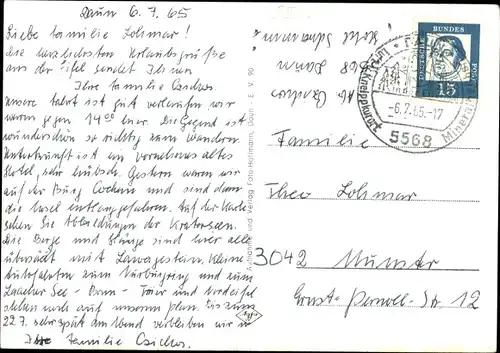 Daun 6.7.65
Liebe Familie Lohmar!
Die herzlichsten Urlaubsgrüße
aus der Eifel sendet Ihnen
Ihre Familie
Unsere Fahrt ist gut verlaufen wir
waren gegen 14 00 hier. Die Gegend ist
wunderschön so richtig zum Wandern
Unterkunft ist ein vornehmes altes
Hotel, sehr hübsch. Gestern waren wir
auf der Burg Cochem und sind dann
die Mosel entlanggefahren. Auf der Karte
sehen Sie Abbildungen der Kraterseen.
Die Berge und Hänge sind hier alle
übersät mit Lavagestein. Kleine
Autofahrten zum Nürburgring und zum
Laacher See - Bonn - Trier und Nordeifel
stehen noch auf unserem Plan. Bis zum
22.7. sehr spät am Abend verbleiben wir
Ihre Familie
5568 Daun
Hotel
Aufnahme und Verlag: Foto-Hoffmann, Daun - E. V. 90
DEUTSCHE BUNDESPOST
15
-6.7.65.-17
5568
Kneippkurort
Mineral
Familie
Theo Lohmar
3042 Munster
Ernst-
Str. 12